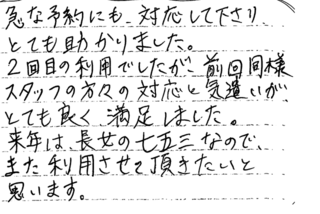 急な予約にも、対応して下さり、
とても助かりました。
2回目の利用でしたが、前回同様
スタッフの方々の対応と気遣いが、
とても良く、満足しました。
来年は、長女の七五三なので、
また利用させて頂きたいと
思います。